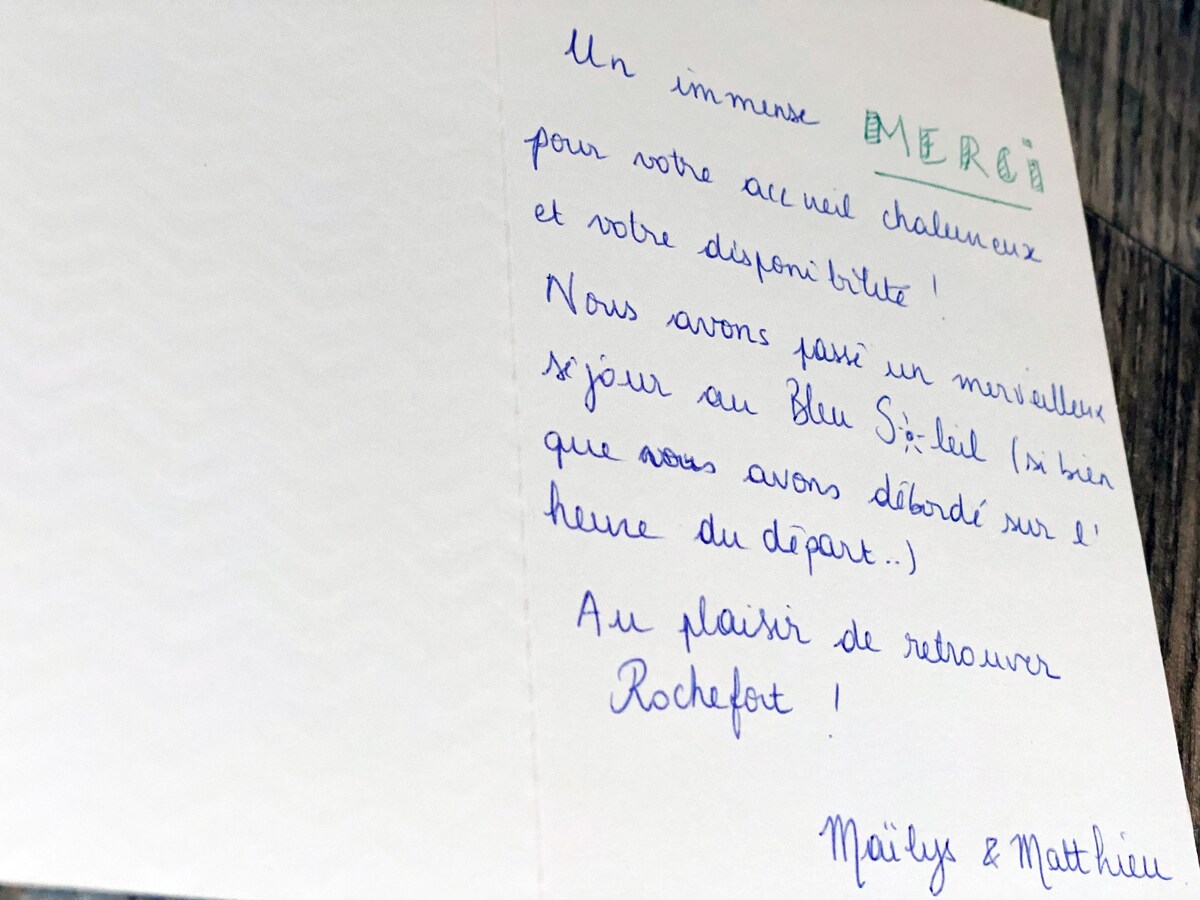 Un immense MERCi
pour votre accueil chaleureux
et votre disponibilité !
Nous avons passé un merveilleux
séjour au Bleu Soleil (si bien
que nous avons débordé sur l'
heure du départ..)
Au plaisir de retrouver
Rochefort !
Maïlys & Matthieu